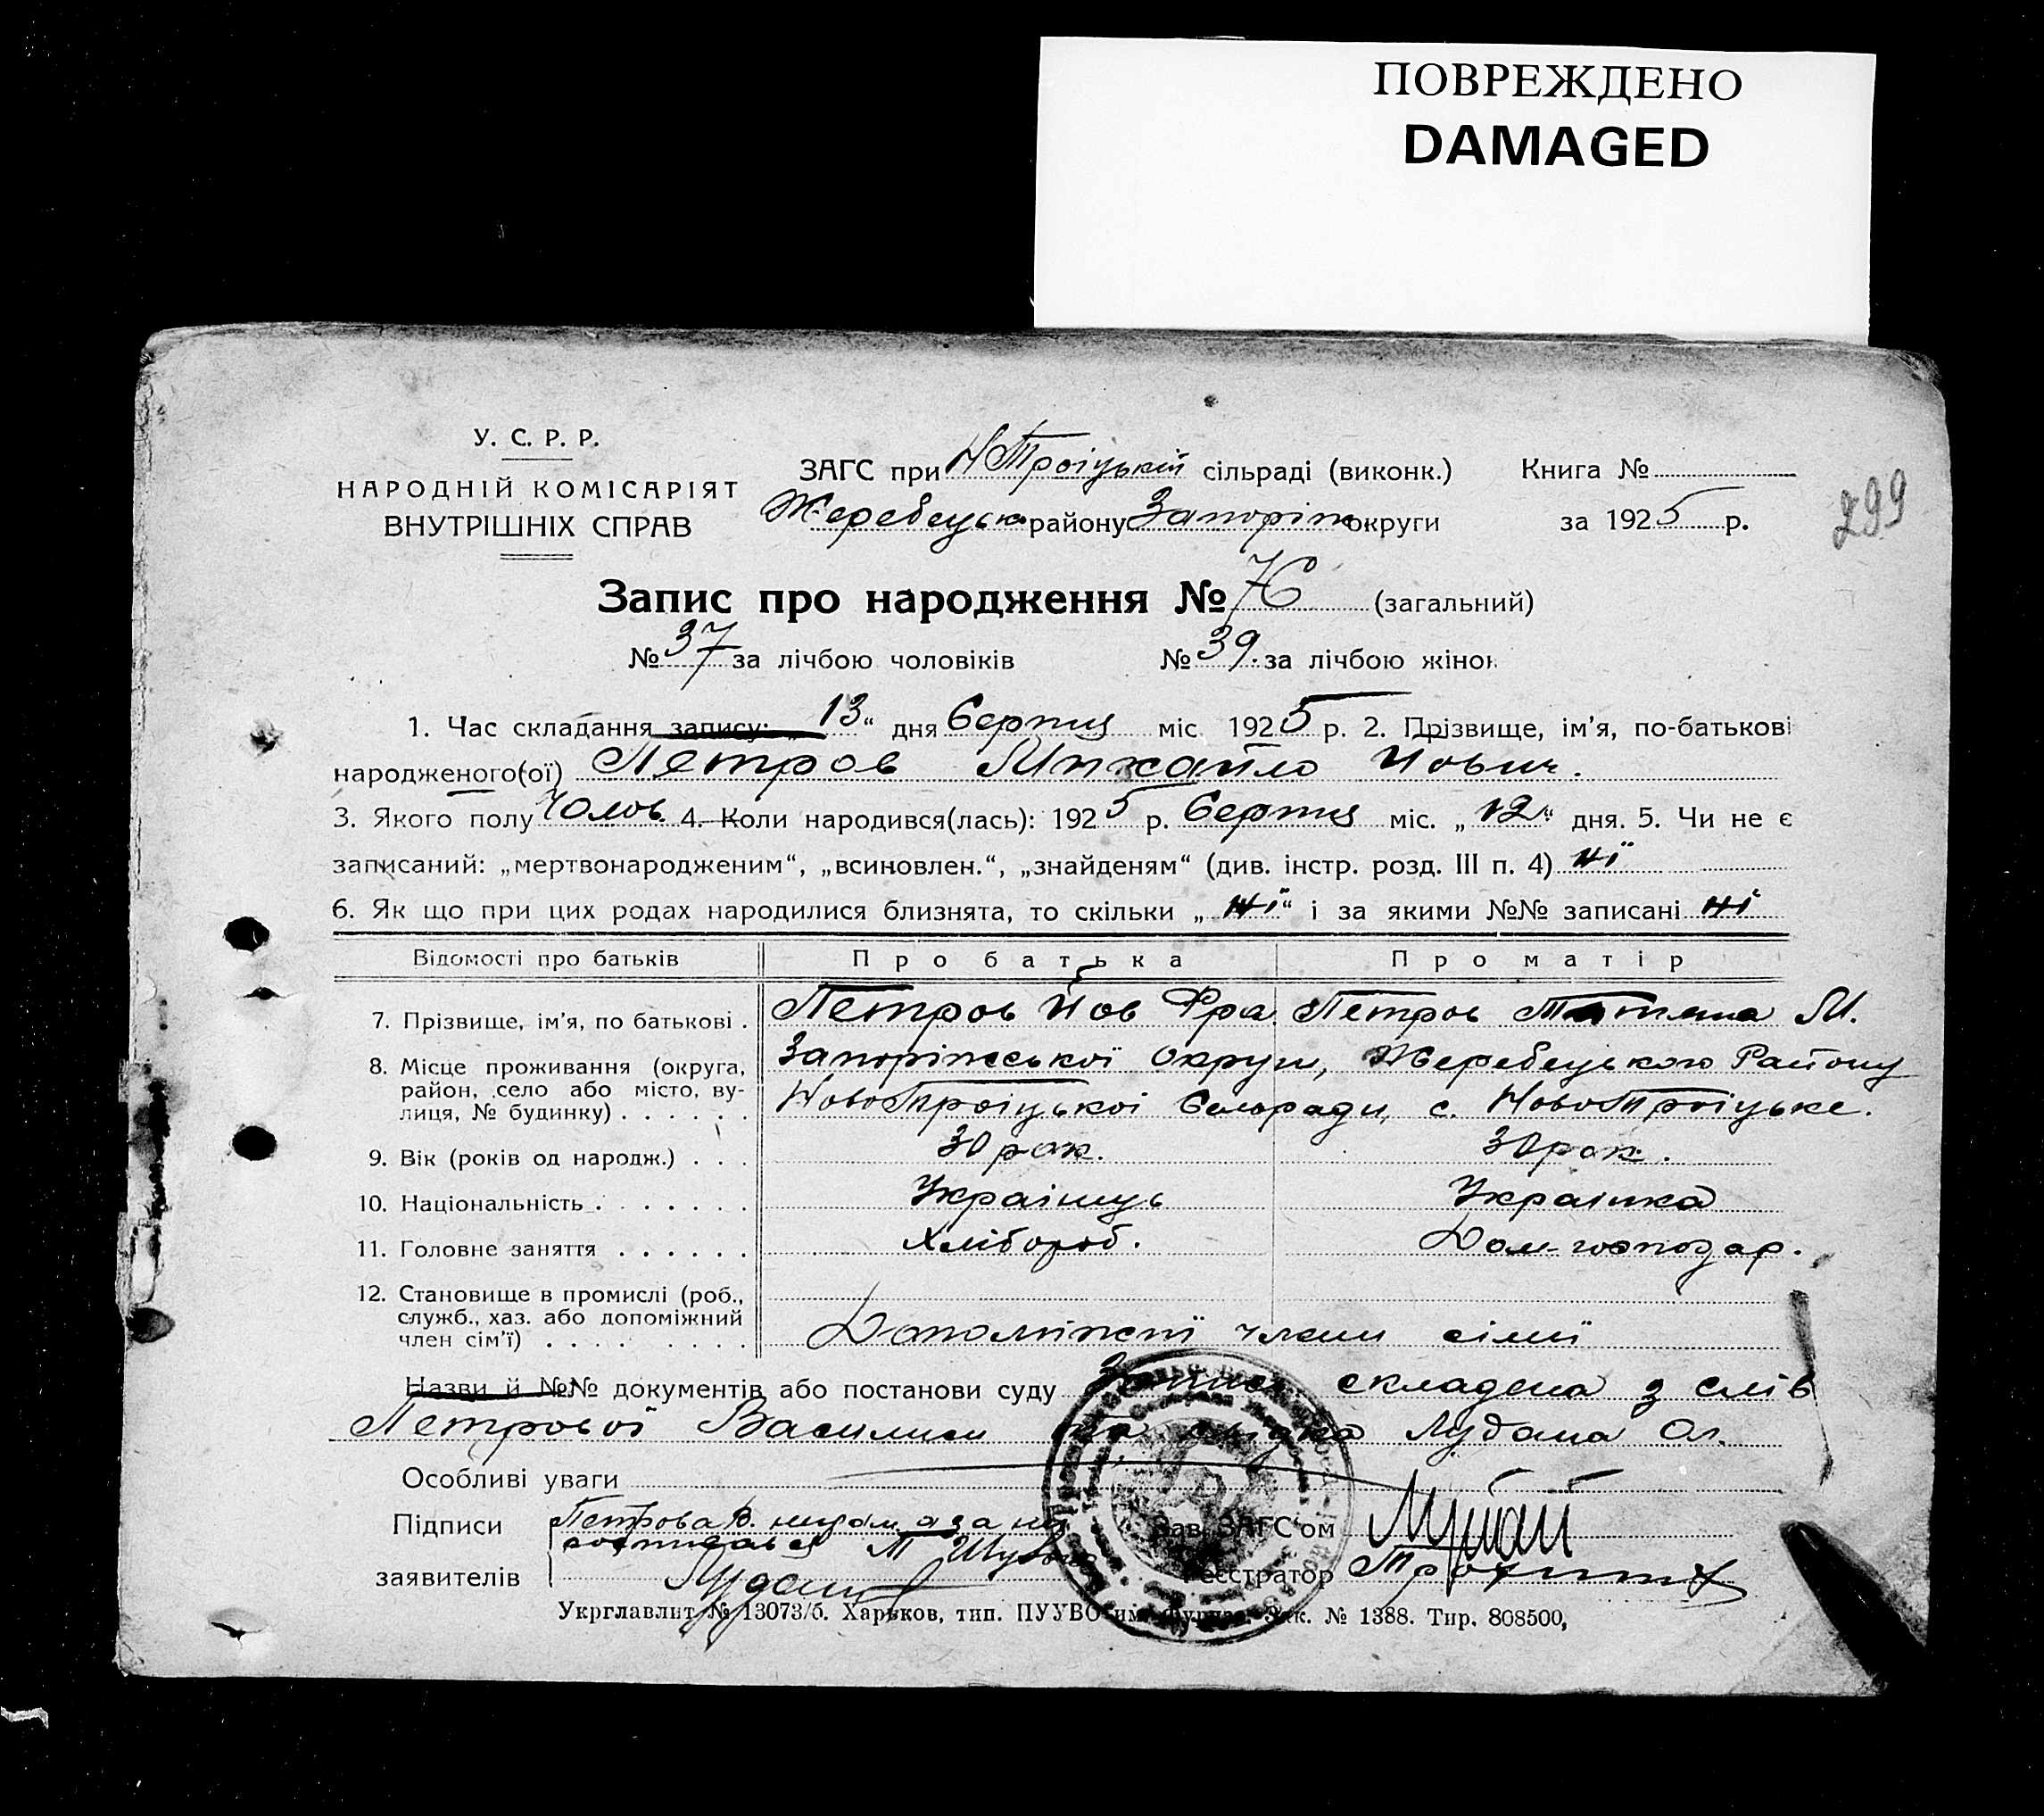 ПОВРЕЖДЕНО
DAMAGED
У. С. Р. Р.
НАРОДНІЙ КОМІСАРІЯТ
ВНУТРІШНІХ СПРАВ
ЗАГС при НТроіцькій сільраді (виконк.) Книга №
Жеребецьк району Запоріж округи за 1925 р.
299
Запис про народження № 76 (загальний)
№ 37 за лічбою чоловіків № 39. за лічбою жінок
1. Час складання запису: „13“ дня Серпня міс 1925 р. 2. Прізвище, ім’я, по-батькові
народженого(ої) Петров Михайло Йович.
3. Якого полу Чолов. 4. Коли народився(лась): 1925 р. Серпня міс. „12“ дня. 5. Чи не є
записаний: „мертвонародженим“, „всиновлен.“, „знайденям“ (див. інстр. розд. III п. 4) ні
6. Як що при цих родах народилися близнята, то скільки „ні“ і за якими №№ записані ні
Відомості про батьків Про батька Про матір
7. Прізвище, ім’я, по батькові . Петров Йов Фра. Петров Татяна М.
8. Місце проживання (округа, Запоріжської округи, Жеребецького Району
район, село або місто, ву-
лиця, № будинку) . . . . . . НовоТроіцькоі Сельради, с. НовоТроіцьке.
9. Вік (років од народж.) . . . 30 рок. 30 рок.
10. Національність . . . . . . . Украінець Украінка
11. Головне заняття . . . . . . Хлібороб. Дом-господар.
12. Становище в промислі (роб.,
служб., хаз. або допоміжний
член сім’ї) . . . . . . . . Допоміжні члени сімї
Назви й №№ документів або постанови суду Запись складена з слів
Петровоі Василиси та свідка Лудана Ол.
Особливі уваги
Підписи Петрова В. неграм. а за неї
росписався М
заявителів
Зав. ЗАГС’ом
Реєстратор
Укрглавлит № 13073/б. Харьков, тип. ПУУВО им. Фрунзе. Зак. № 1388. Тир. 808500,